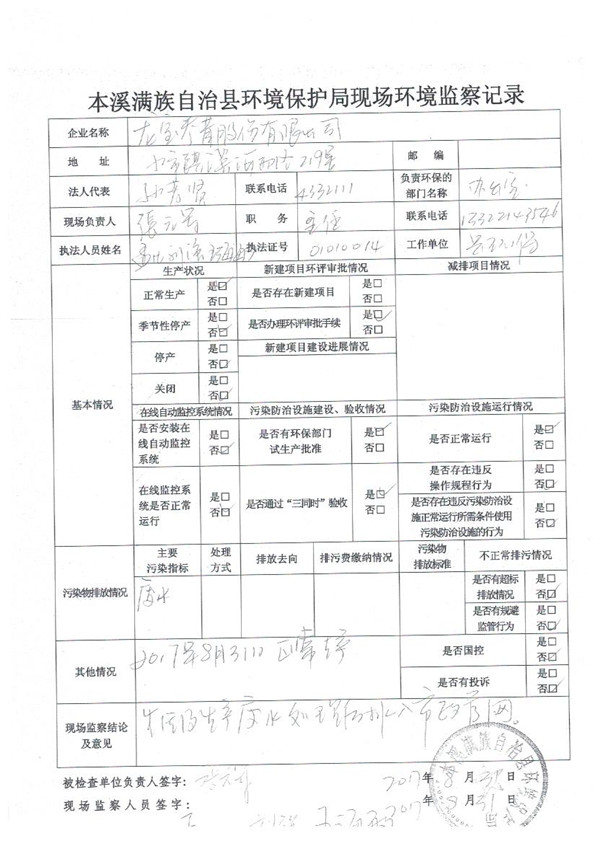 本溪满族自治县环境保护局现场环境监察记录
企业名称 龙宝参茸股份有限公司
地 址 219 邮 编
法人代表 联系电话 4332111 负责环保的部门名称 办公室
现场负责人 职 务 主任 联系电话 13322143546
执法人员姓名 执法证号 01010014 工作单位
基本情况
生产状况 新建项目环评审批情况 减排项目情况
正常生产 是☑ 否□ 是否存在新建项目 是□ 否□
季节性停产 是□ 否☑ 是否办理环评审批手续 是☑ 否□
停产 是□ 否☑ 新建项目建设进展情况
关闭 是□ 否☑
在线自动监控系统情况 污染防治设施建设、验收情况 污染防治设施运行情况
是否安装在线自动监控系统 是□ 否☑ 是否有环保部门试生产批准 是☑ 否□ 是否正常运行 是☑ 否□
在线监控系统是否正常运行 是□ 否☑ 是否通过“三同时”验收 是☑ 否□ 是否存在违反操作规程行为 是□ 否☑
是否存在违反污染防治设施正常运行所需条件使用污染防治设施的行为 是□ 否☑
污染物排放情况
主要污染指标 处理方式 排放去向 排污费缴纳情况 污染物排放标准 不正常排污情况
废水 是否有超标排放情况 是□ 否☑
是否有规避监管行为 是□ 否☑
其他情况 2017年8月31日 正常 是否国控 是□ 否☑
是否有投诉 是□ 否☑
现场监察结论及意见 生产废水处理后排入市政管网
被检查单位负责人签字： 2017年8月31日
现场监察人员签字： 2017年8月31日
本溪满族自治县环